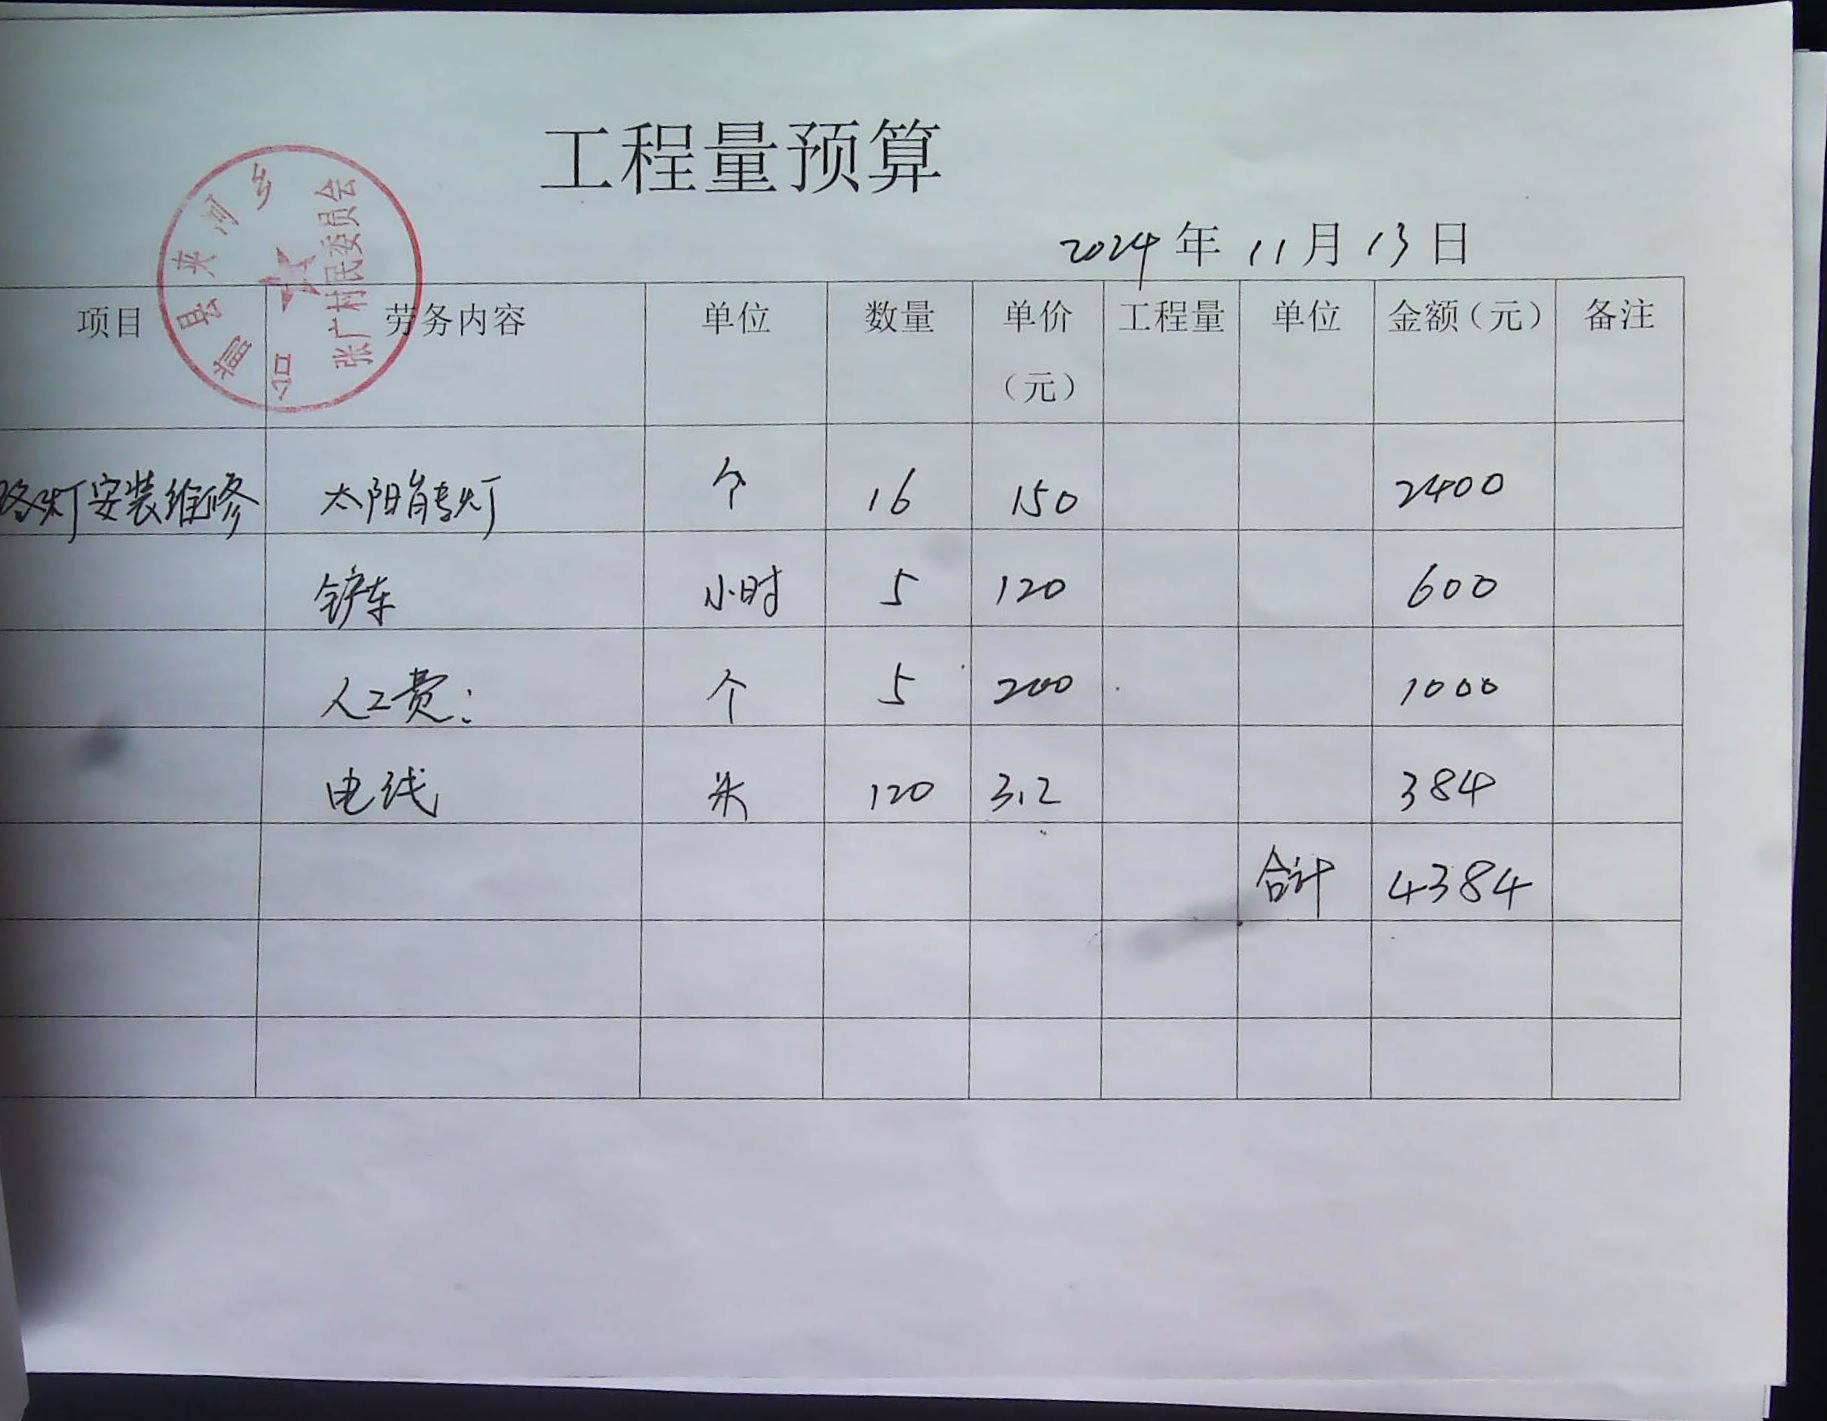 工程量预算
2024年11月13日
项目 劳务内容 单位 数量 单价（元） 工程量 单位 金额（元） 备注
路灯安装维修 太阳能灯 个 16 150 2400
铲车 小时 5 120 600
人工费： 个 5 200 1000
电线 米 120 3.2 384
合计 4384
县夹河乡
张广村民委员会